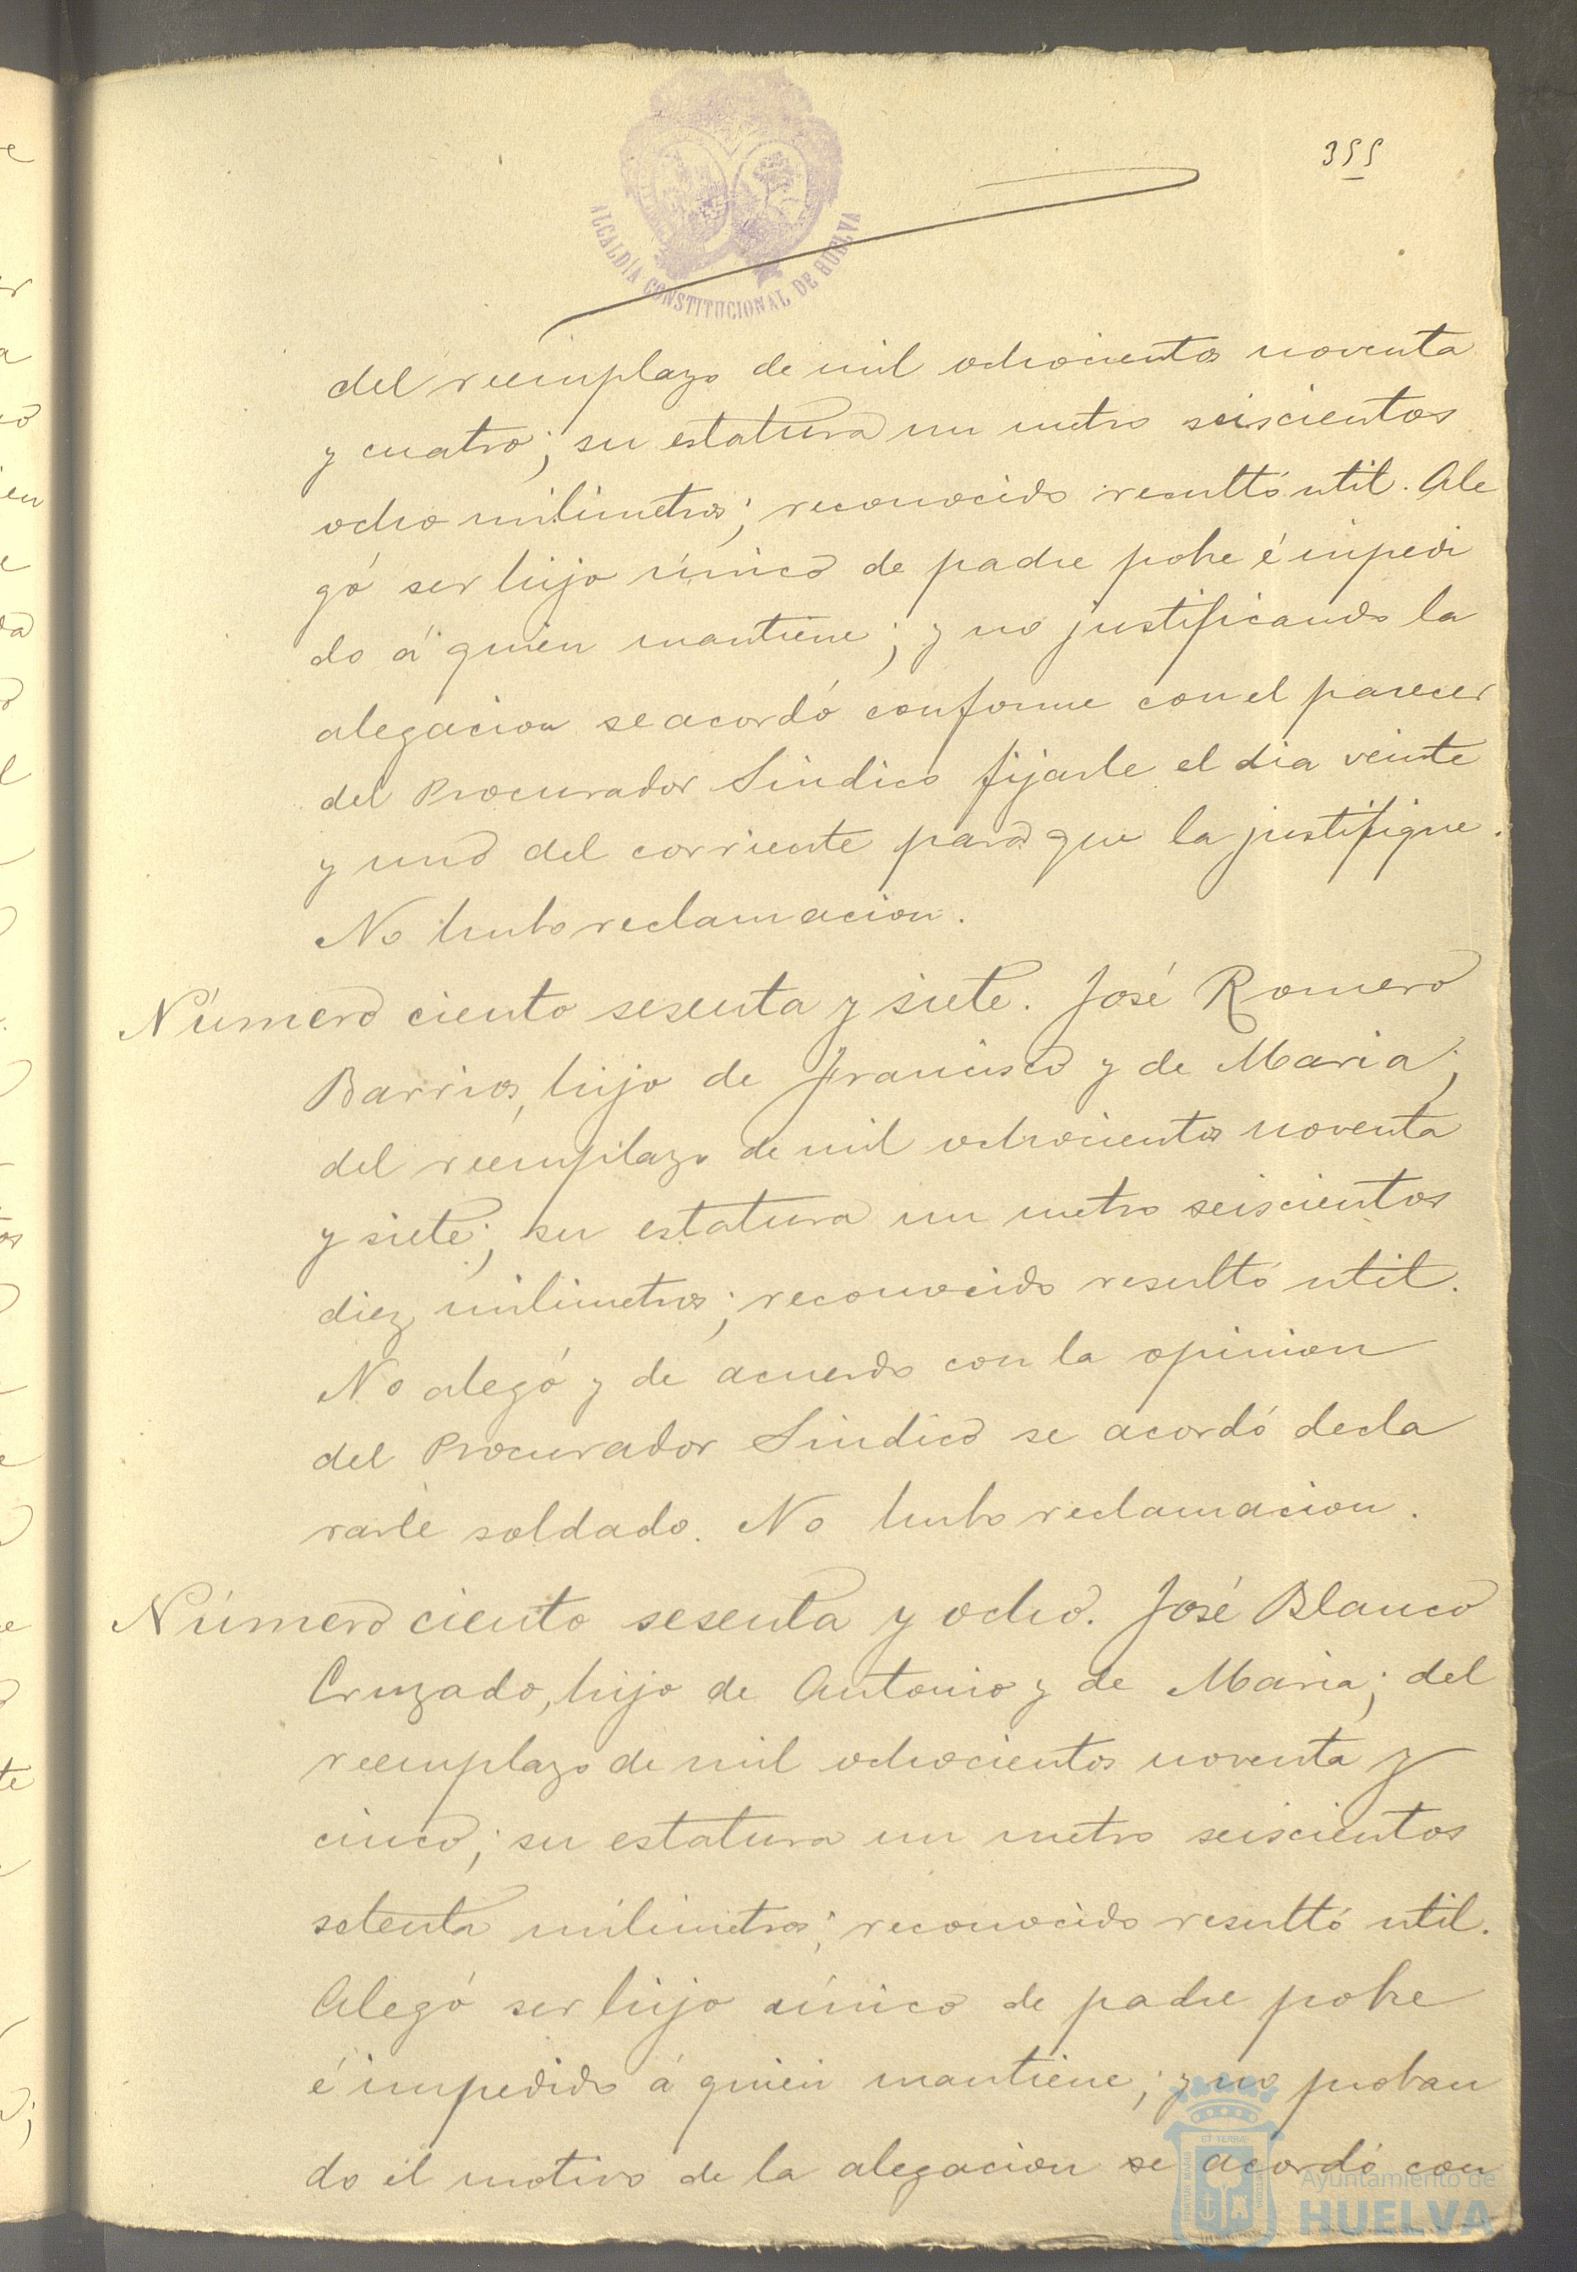 355
ALCALDÍA CONSTITUCIONAL DE HUELVA
del reemplazo de mil ochocientos noventa
y cuatro; su estatura un metro seiscientos
ocho milimetros; reconocido resultó util. Ale
gó ser hijo único de padre pobre é impedi
do á quien mantiene; y no justificando la
alegacion se acordó conforme con el parecer
del Procurador Sindico fijarle el dia veinte
y uno del corriente para que la justifique.
No hubo reclamacion.
Número ciento sesenta y siete. José Romero
Barrios, hijo de Francisco y de Maria;
del reemplazo de mil ochocientos noventa
y siete; su estatura un metro seiscientos
diez milimetros; reconocido resultó util.
No alegó y de acuerdo con la opinion
del Procurador Sindico se acordó decla
rarle soldado. No hubo reclamacion.
Número ciento sesenta y ocho. José Blanco
Cruzado, hijo de Antonio y de Maria; del
reemplazo de mil ochocientos noventa y
cinco; su estatura un metro seiscientos
setenta milimetros; reconocido resultó util.
Alegó ser hijo único de padre pobre
é impedido á quien mantiene; y no proban
do el motivo de la alegacion se acordó con
Ayuntamiento de
HUELVA